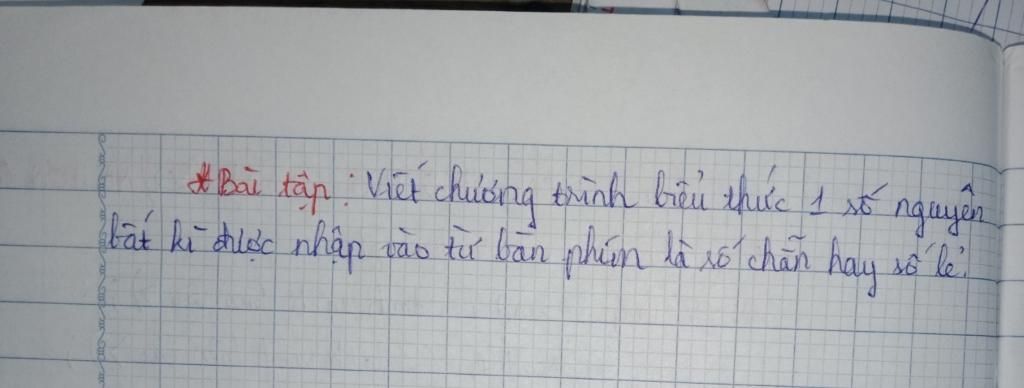 * Bài tập: Viết chương trình biểu thức 1 số nguyên
bất kì được nhập vào từ bàn phím là số chẵn hay số lẻ.